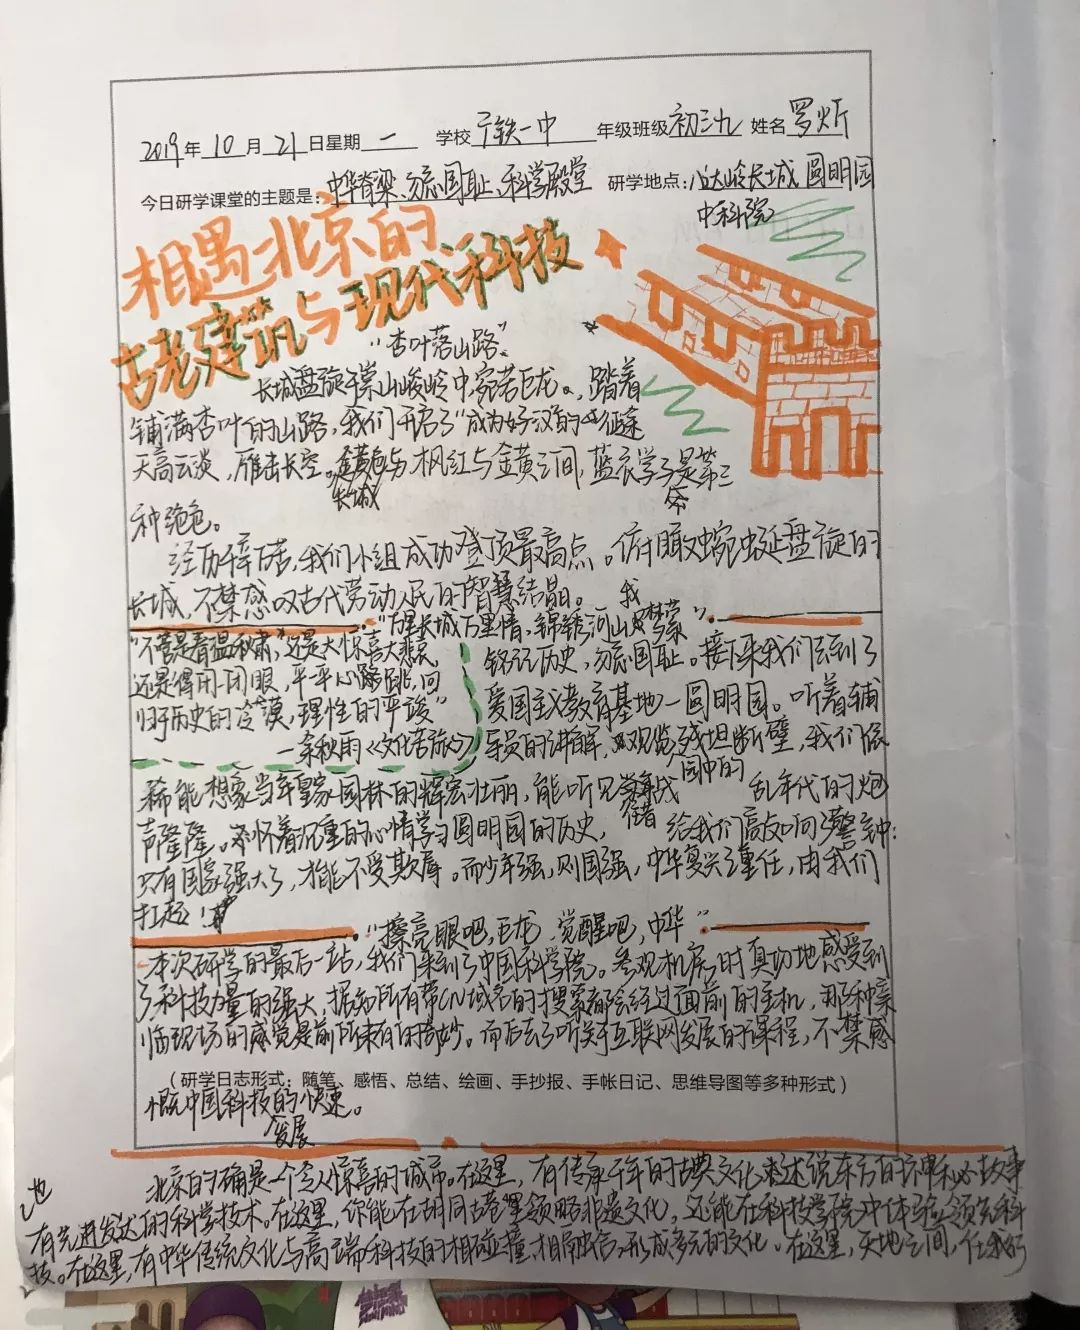 2019年10月21日星期一 学校广铁一中 年级班级初三九 姓名罗炘
今日研学课堂的主题是：中华脊梁、勿忘国耻、科学殿堂 研学地点：八达岭长城 圆明园
中科院
相遇北京的
古老建筑与现代科技
“杏叶落山路”
长城盘旋于崇山峻岭中，宛若巨龙。踏着
铺满杏叶的山路，我们开启了“成为好汉”的征途
天高云淡，雁击长空。长城与枫红与金黄之间，蓝衣学子是第三
种绝色。
经历千辛万苦，我们小组成功登顶最高点。俯瞰蜿蜒盘旋的
长城，不禁感叹古代劳动人民的智慧结晶。
“万里长城万里情，锦绣河山我梦萦”
“不管是春温秋肃，还是大惊喜大悲哀，
还是得闭一闭眼，平一平心跳，回
归于历史的冷漠，理性的平谈”
—余秋雨《文化苦旅》
铭记历史，勿忘国耻。接下来我们去到了
爱国主义教育基地—圆明园。听着辅
导员的讲解，观览园中的残坦断壁，我们依
稀能想象当年皇家园林的辉宏壮丽，能听见战乱年代的炮
声隆隆。怀着沉重的心情学习圆明园的历史，给我们敲响了警钟：
只有国家强大了，才能不受欺辱。而少年强，则国强，中华复兴之重任，由我们
扛起！
“擦亮眼吧，巨龙，觉醒吧，中华”
本次研学的最后一站，我们来到了中国科学院。参观机房时真切地感受到
了科技力量的强大，据知所有带CN域名的搜索都会经过面前的主机，那种亲
临现场的感觉是前所未有的奇妙。而后去了听关于互联网发展的课程，不禁感
（研学日志形式：随笔、感悟、总结、绘画、手抄报、手帐日记、思维导图等多种形式）
慨中国科技的快速发展。
北京的确是一个令人惊喜的城市。在这里，有传承千年的古典文化来述说东方的故事
也有先进发达的科学技术。在这里，你能在胡同古巷里领略非遗文化，还能在科技学院中体验领先科
技。在这里，有中华传统文化与高端科技的相碰撞，相融合，形成多元的文化。在这里，天地之间，任我行